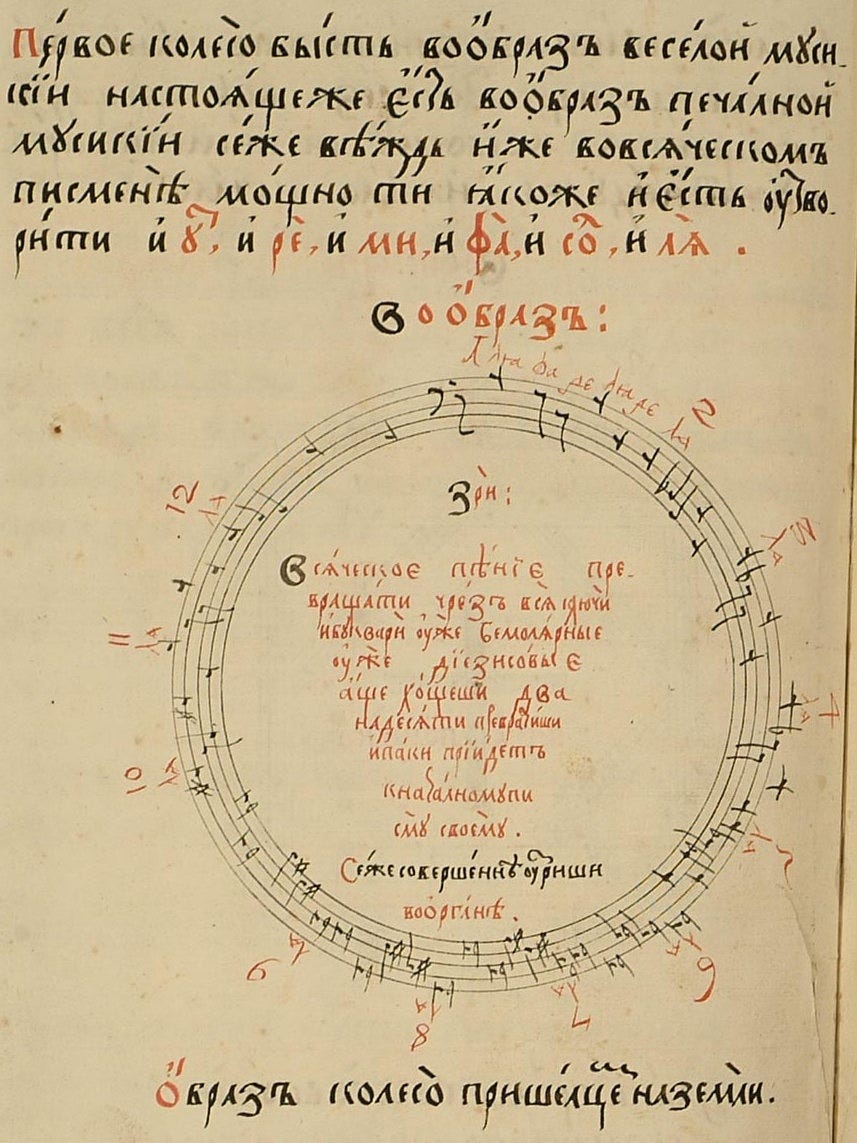 Пе́рвое колесо̀ бы́сть воо́бразъ весе́лой мꙋси-
кі́и настоѧ́щеже є҆́сть воо́бразъ печа́лной
мꙋсикі́и се́же вѣ́ждь и҆́же вовсѧ́ческомъ
писменѣ̀ мо́щно ти ꙗ҆́коже и҆є҆́сть ᲂу҆тво-
ри́ти и҆ ꙋ҆т, и҆ рѐ, и҆ ми, и҆ фа̀, и҆ со̀л, и҆ ла̀.
Воо́бразъ:
Зрѝ:
Всѧ́ческое пѣ́ніе пре-
враща́ти чре́зъ всѧ̀ ключѝ
и҆бꙋквари̑ ᲂу҆́же бемолѧ́рные
ᲂу҆́же дїе́зисовые
а҆́ще хо́щеши два
на́десѧти преврати́ши
и҆па́ки прїи́детъ
кнача́лномꙋпи
смꙋ̀ своемꙋ̀.
Се́же соверше́ннѣ ᲂу҆́зриши
воо҆рга́нѣ.
2
12
11
10
9
8
7
6
О҆́бразъ колесо̀ прише́лще наземлѝ.